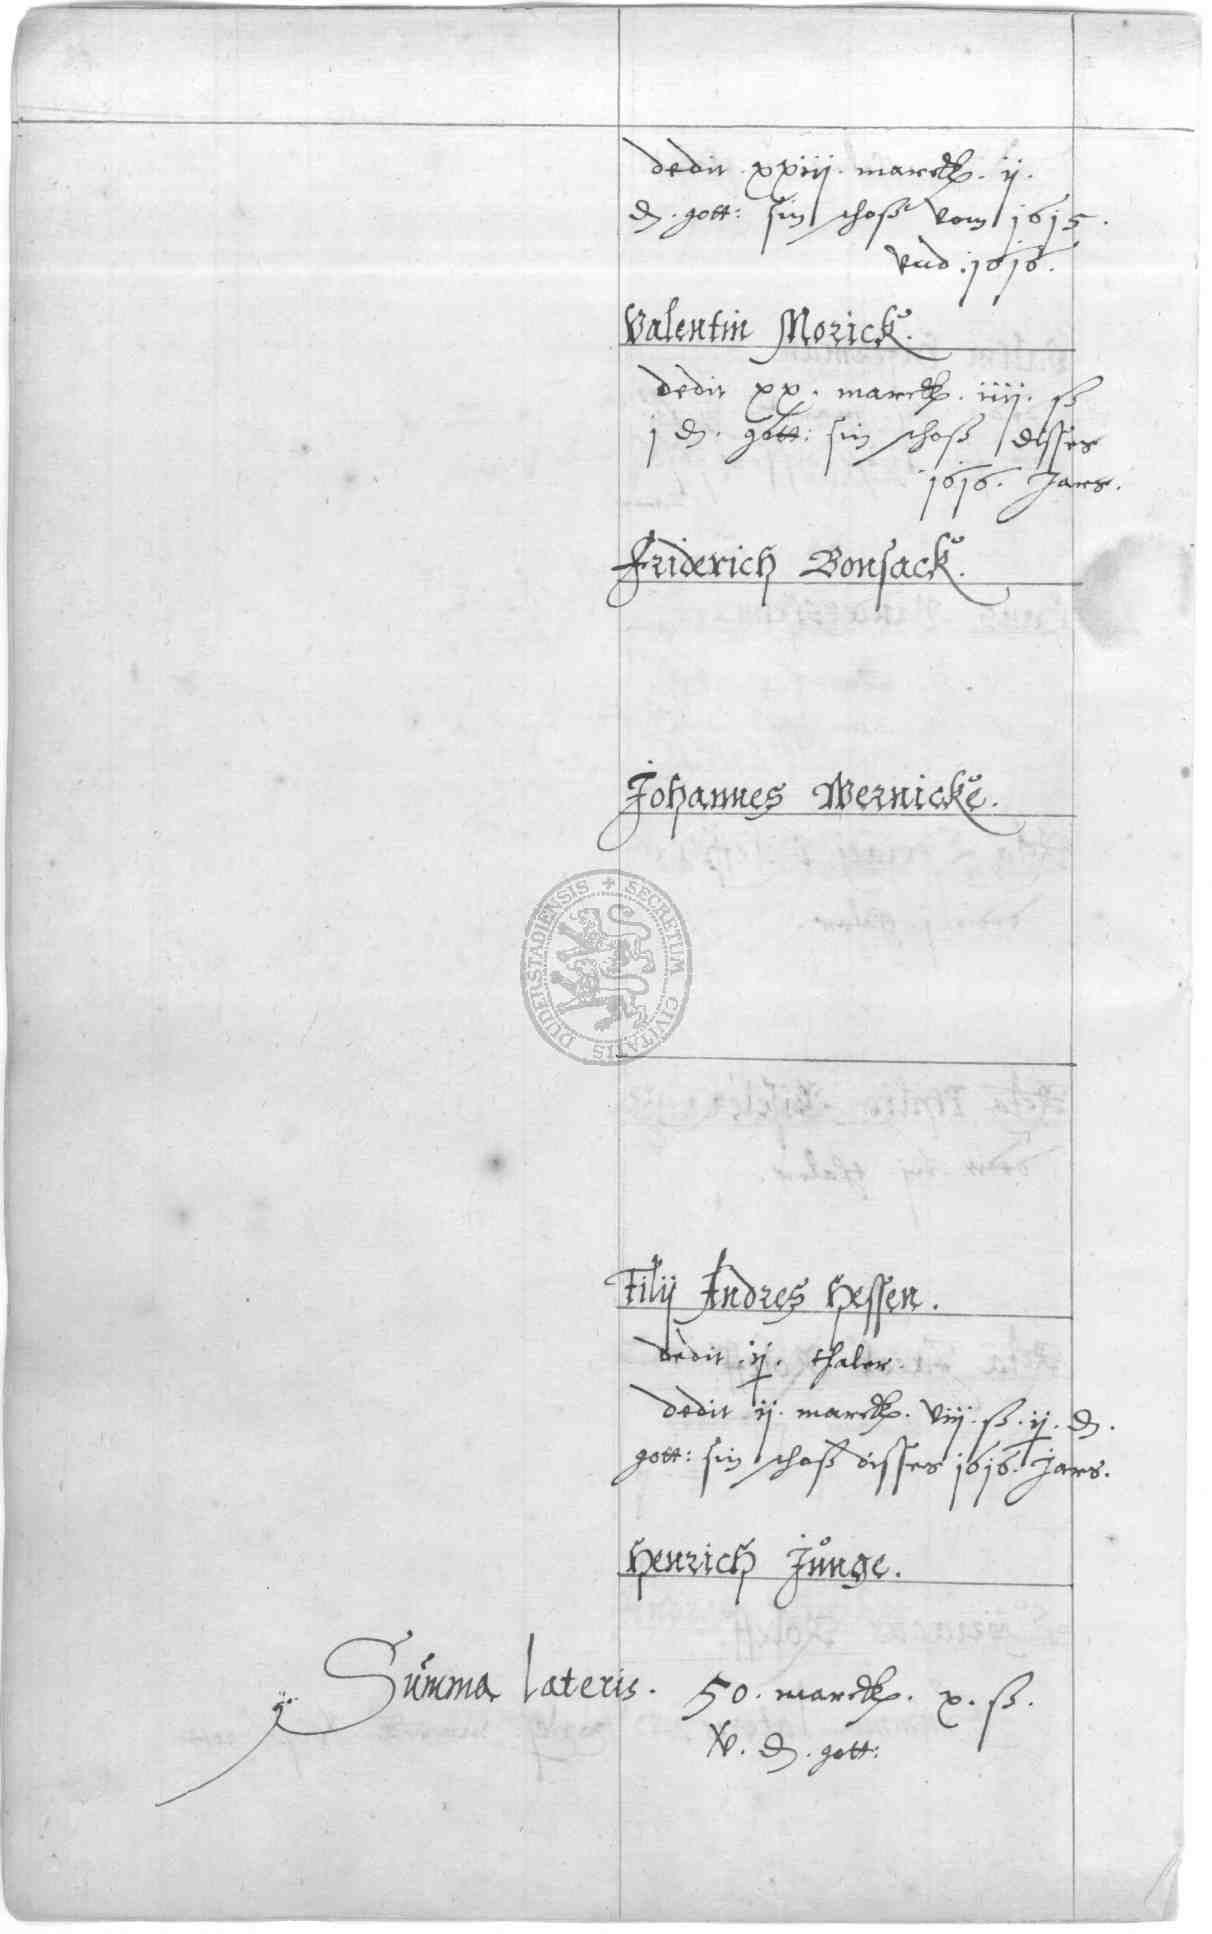 dedit xxiij. marck. ij.
d. gott: sin schoß vom 1615.
vnd. 1616.
Valentin Morick.
dedit xx. marck. iiij. ß
j d. gott: sin schoß disses
1616. Jars.
Friderich Bonsack.
Johannes Wernicke.
SECRETUM CIVITATIS DUDERSTADIENSIS
Filij Andres Hessen.
dedit ij. thaler.
dedit ij. marck. viij. ß. ij. d.
gott: sin schoß disses 1616. Jars.
Henrich Junge.
Summa lateris. 50. marck. x. ß.
v. d. gott: